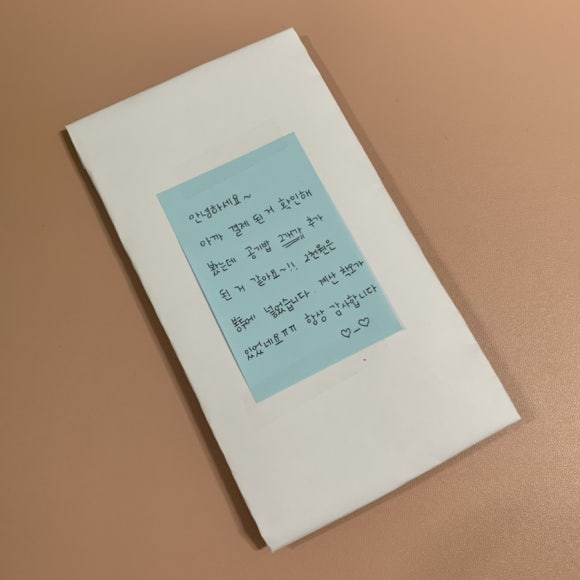 안녕하세요~
아까 결제 된 거 확인해
봤는데 공기밥 2개가 추가
된 거 같아요~!! 2천원은
봉투에 넣었습니다. 계산 착오가
있었네요ㅠㅠ 항상 감사합니다
♡_♡